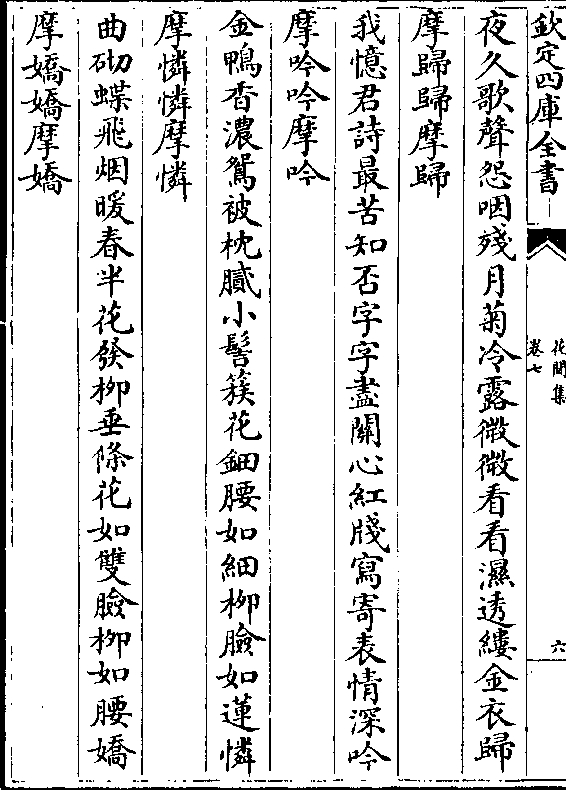 欽定四庫全書
花間集
卷七
六
夜久歌聲怨咽殘月菊冷露微微看看濕透縷金衣歸
摩歸歸摩歸
我憶君詩最苦知否字字盡關心紅牋寫寄表情深吟
摩吟吟摩吟
金鴨香濃鴛被枕膩小髻簇花鈿腰如細柳臉如蓮憐
摩憐憐摩憐
曲砌蝶飛烟暖春半花發柳垂條花如雙臉柳如腰嬌
摩嬌嬌摩嬌